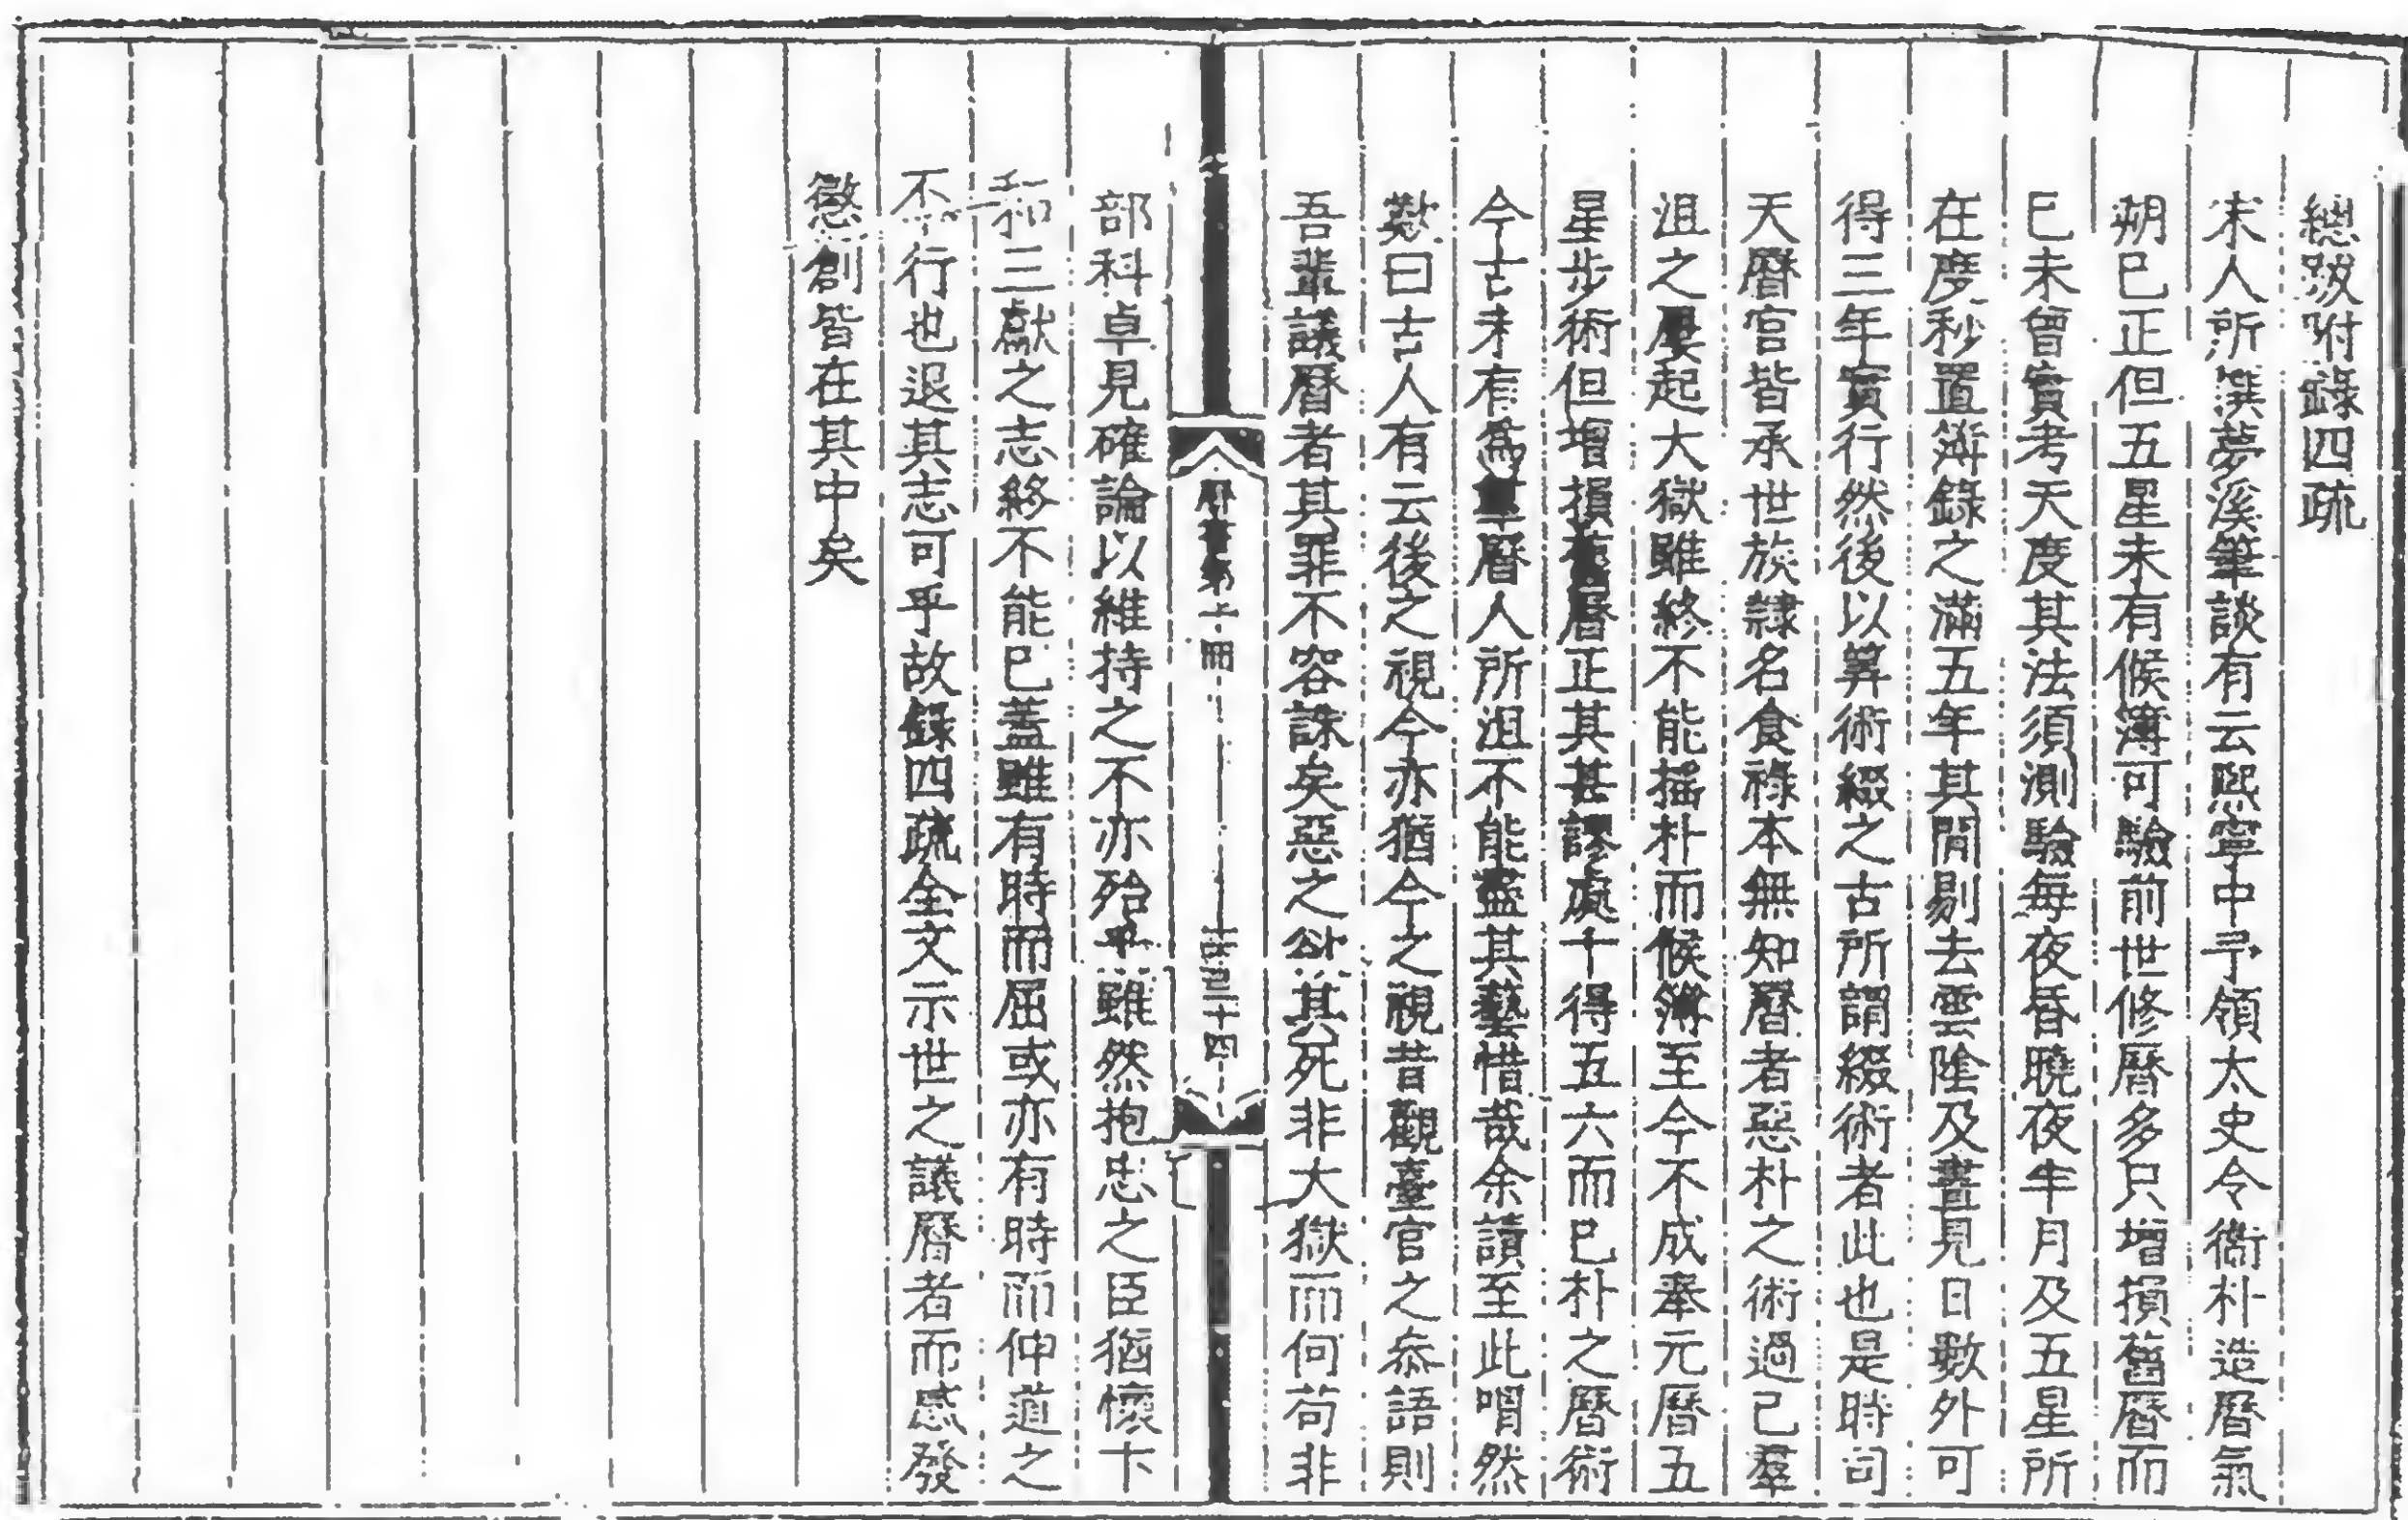 總跋附錄四疏
宋人所撰夢溪筆談有云熙寧中予領太史令衞朴造曆氣
朔已正但五星未有候簿可驗前世修曆多只增損舊曆而
已未曾實考天度其法須測驗每夜昏曉夜半月及五星所
在度秒置簿錄之滿五年其間剔去雲陰及晝見日數外可
得三年實行然後以筭術綴之古所謂綴術者此也是時司
天曆官皆承世族隸名食祿本無知曆者惡朴之術過已羣
沮之屢起大獄雖終不能搖朴而候簿至今不成奉元曆五
星步術但增損舊曆正其甚謬處十得五六而已朴之曆術
今古未有為羣曆人所沮不能盡其藝惜哉余讀至此喟然
歎曰古人有云後之視今亦猶今之視昔觀臺官之叅語則
吾輩議曆者其罪不容誅矣惡之欲其死非大獄而何苟非
曆書第上冊
一百二十四
部科卓見確論以維持之不亦殆乎雖然抱忠之臣猶懷卞
和三獻之志終不能已蓋雖有時而屈或亦有時而伸道之
不行也退其志可乎故錄四疏全文示世之議曆者而感發
懲創皆在其中矣